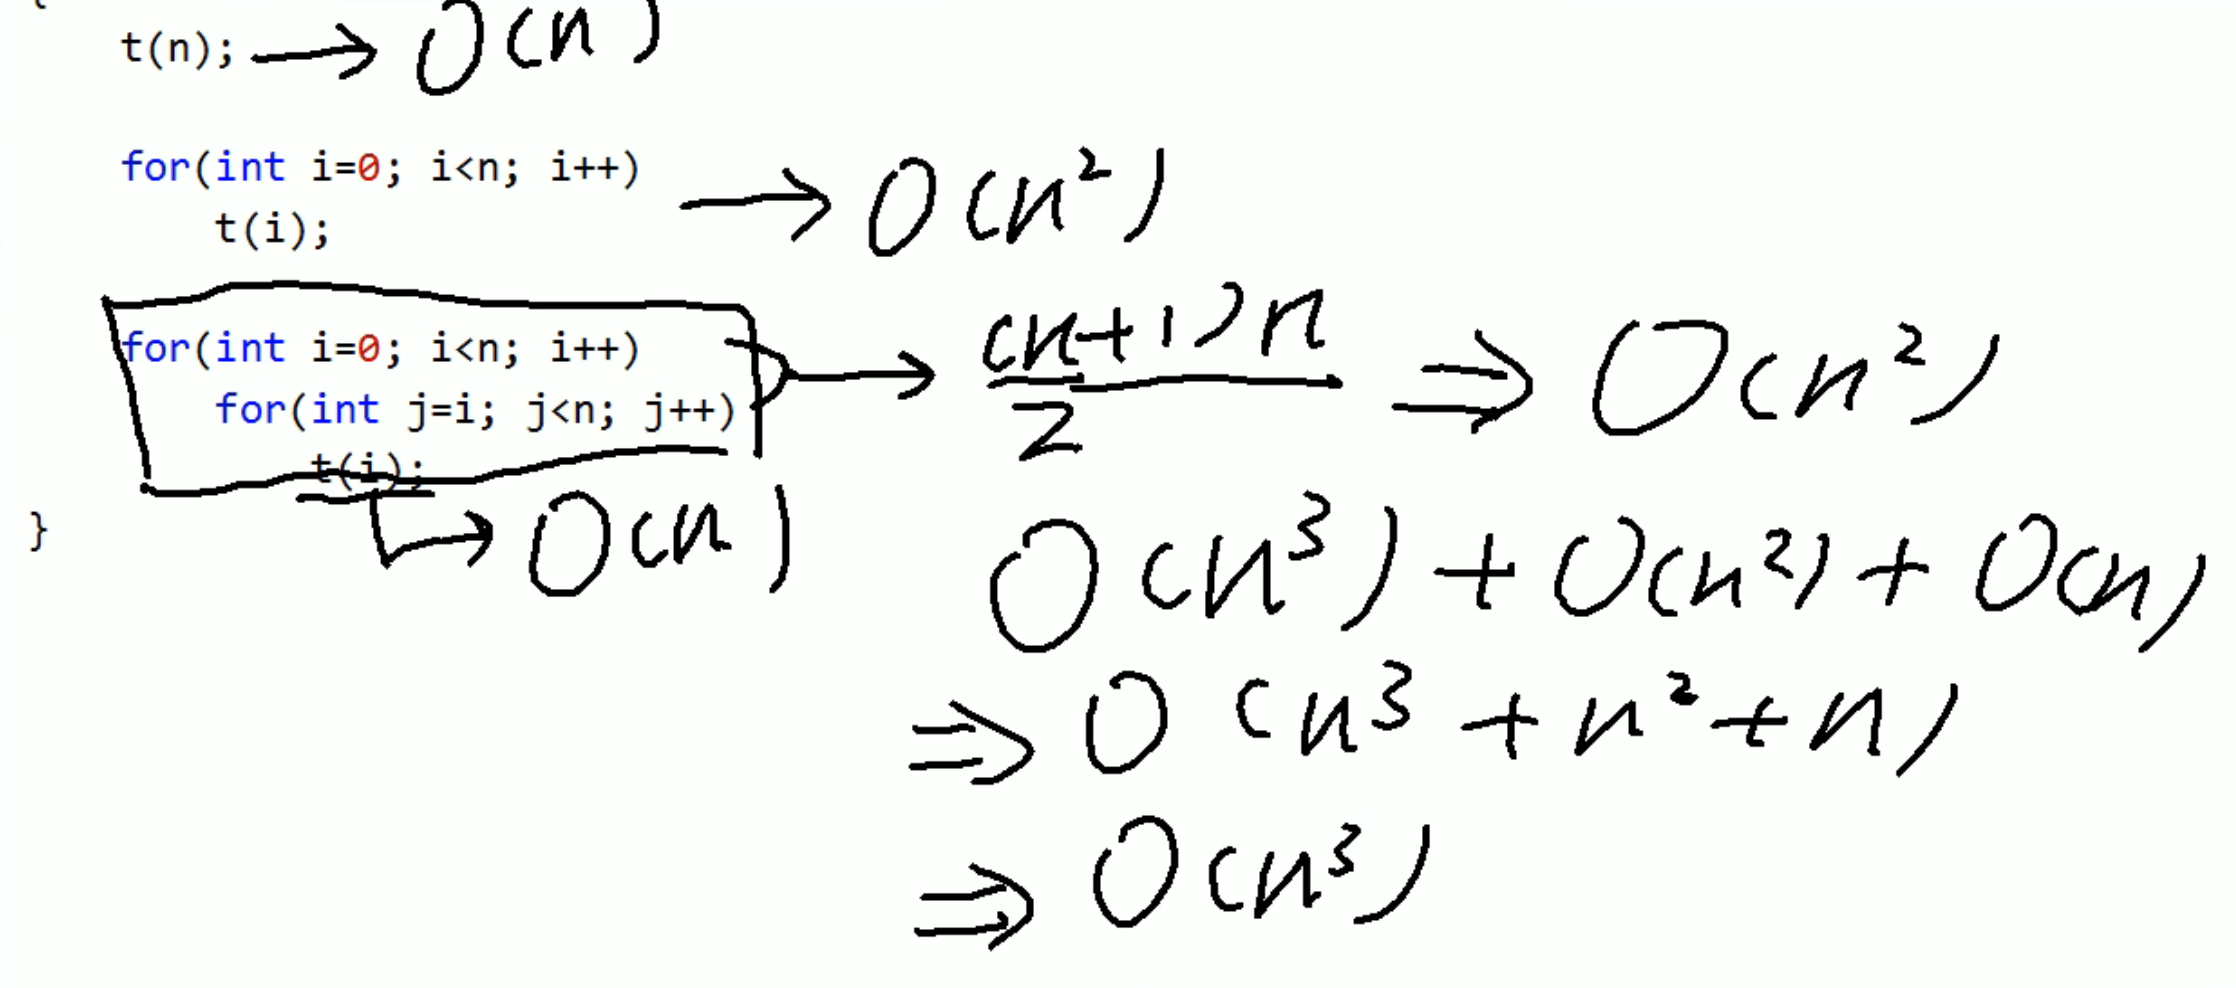 t(n); → O(n)
for(int i=0; i<n; i++)
t(i);
→ O(n²)
for(int i=0; i<n; i++)
for(int j=i; j<n; j++)
t(i);
→ (n+1)n / 2 ⇒ O(n²)
→ O(n)
}
O(n³) + O(n²) + O(n)
⇒ O(n³ + n² + n)
⇒ O(n³)